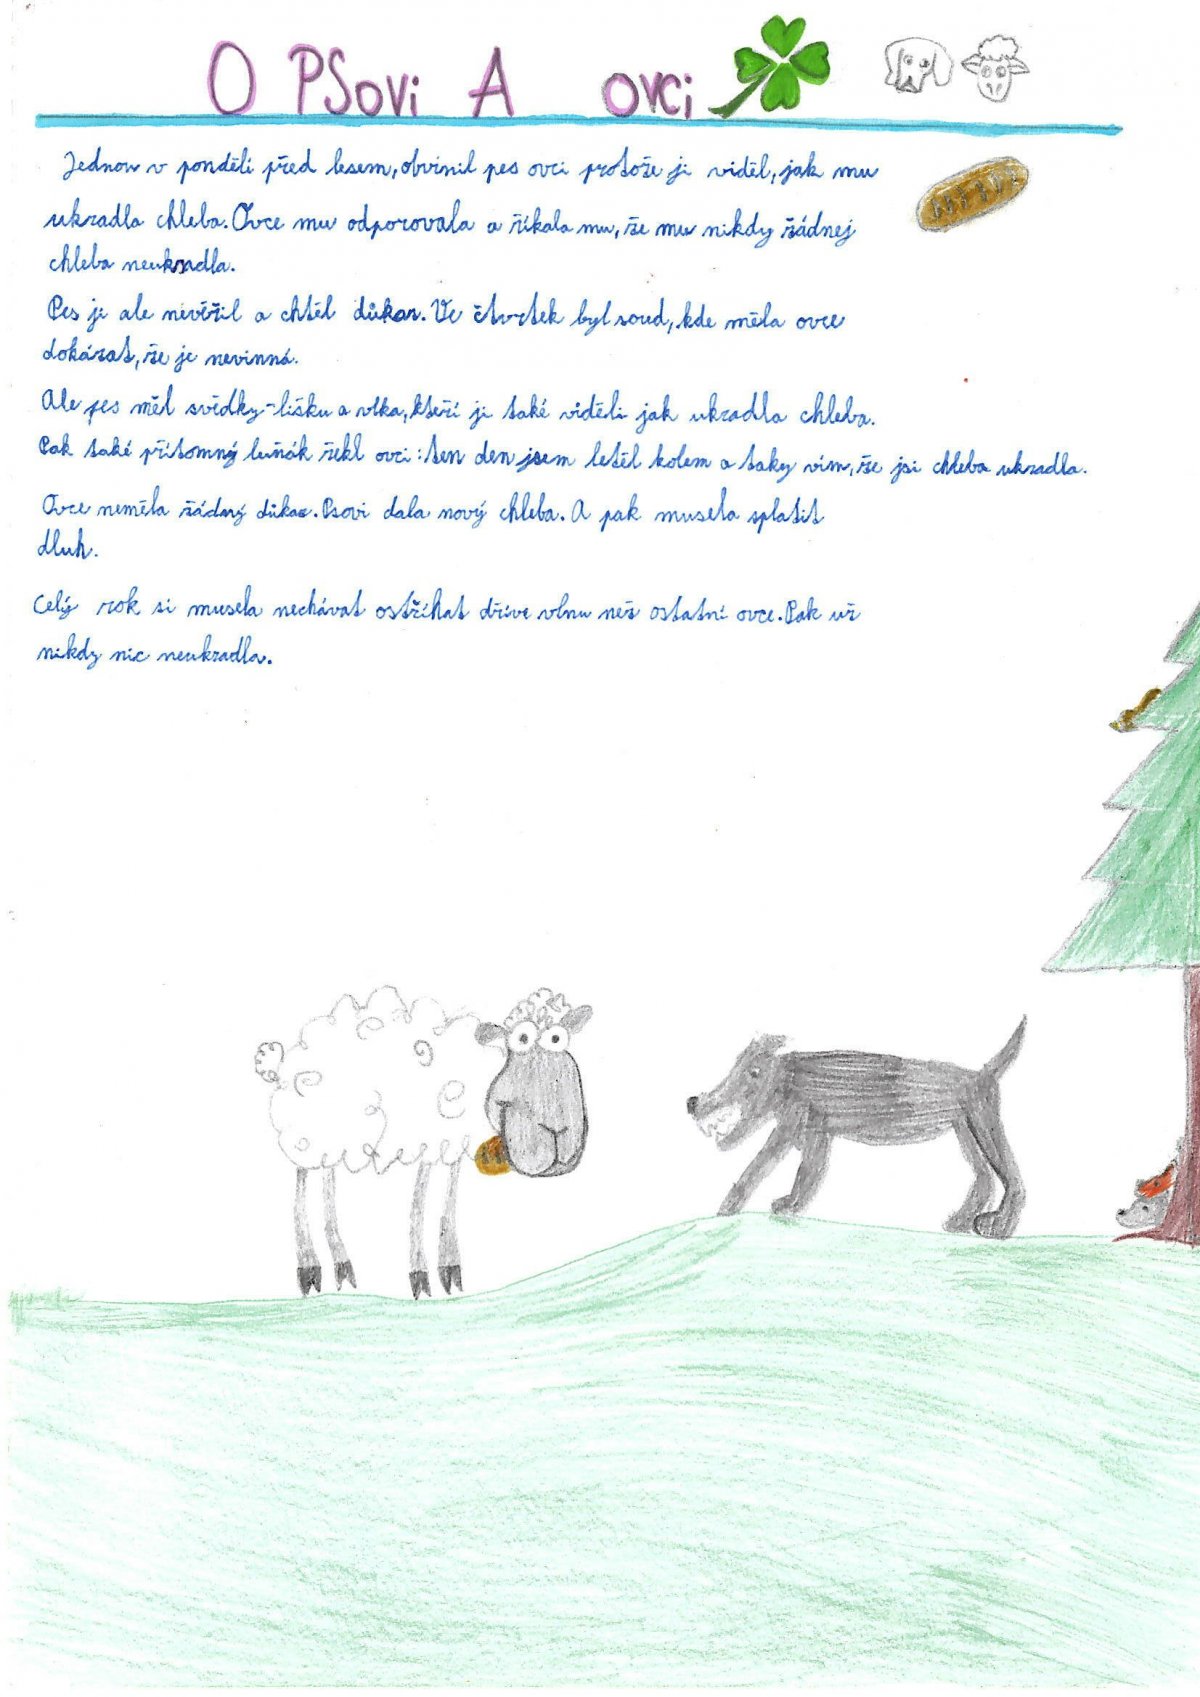 O PSovi A ovci
Jednou v pondělí před lesem, obvinil pes ovci protože ji viděl, jak mu
ukradla chleba. Ovce mu odporovala a říkala mu, že mu nikdy žádnej
chleba neukradla.
Pes jí ale nevěřil a chtěl důkaz. Ve čtvrtek byl soud, kde měla ovce
dokázat, že je nevinná.
Ale pes měl svědky-lišku a vlka, kteří ji také viděli jak ukradla chleba.
Pak také přítomný luňák řekl ovci: ten den jsem letěl kolem a taky vím, že jsi chleba ukradla.
Ovce neměla žádný důkaz. Psovi dala nový chleba. A pak musela splatit
dluh.
Celý rok si musela nechávat ostříhat dříve vlnu než ostatní ovce. Pak už
nikdy nic neukradla.